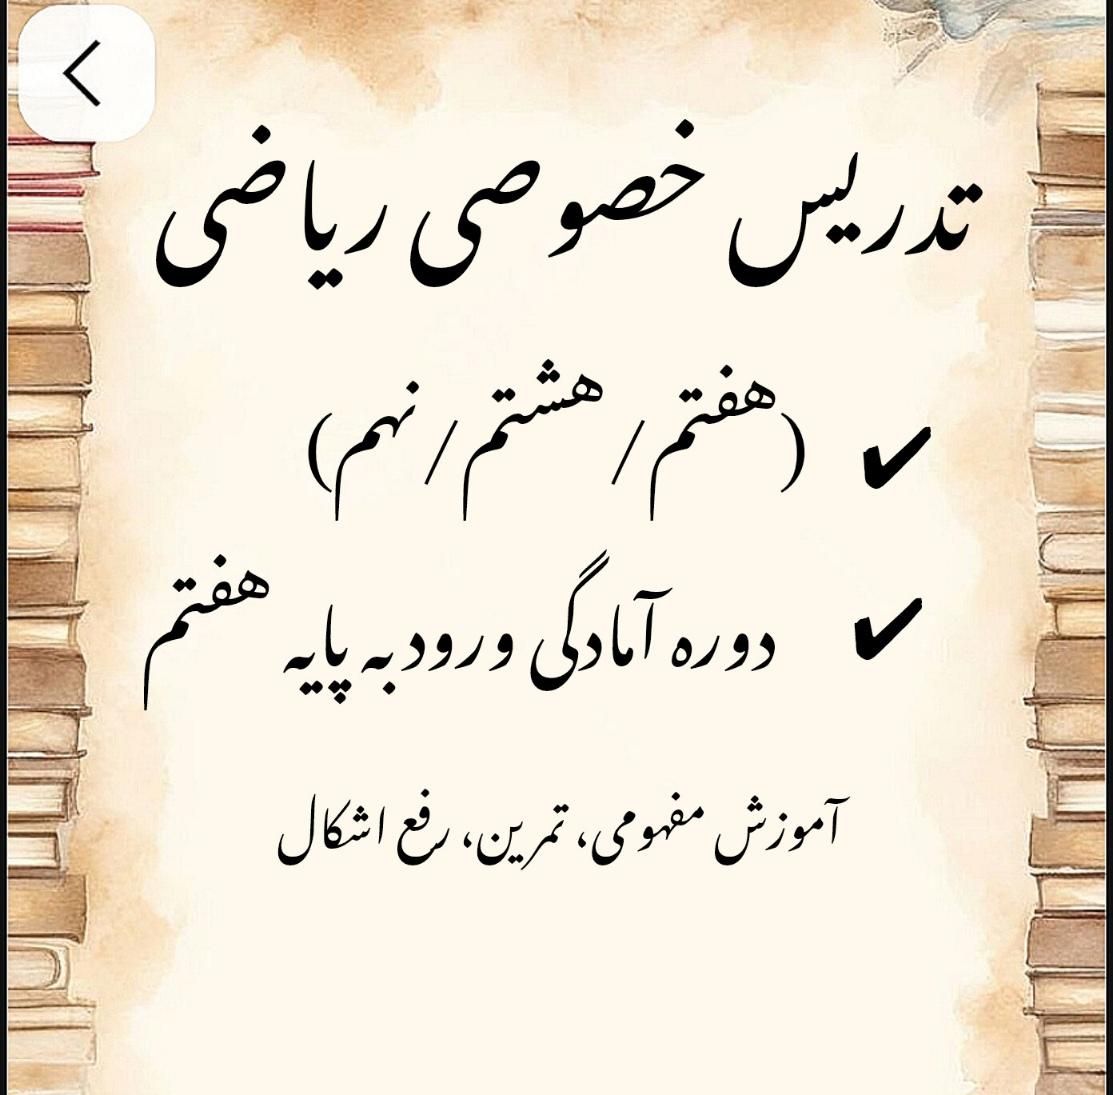 تدریس خصوصی ریاضی
✔ (هفتم/هشتم/نهم)
✔ دوره آمادگی ورود به پایه هفتم
آموزش مفهومی، تمرین، رفع اشکال